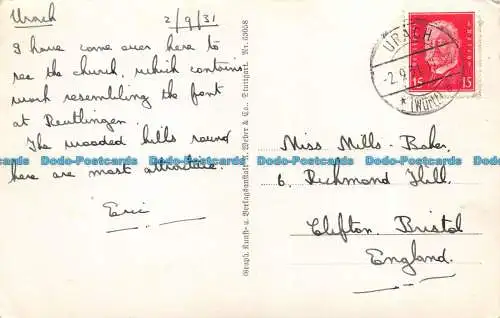 Urach 2/9/31
I have come over here to
see the church, which contains
work resembling the font
at Reutlingen.
The wooded hills round
here are most attractive.
Eric
Graph. Kunst- u. Verlagsanstalt v. Weber & Co. Stuttgart. Nr. 53058
URACH
-2.9.
(WÜRTT.)
15 15
Miss Mills-Baker,
6, Richmond Hill,
Clifton, Bristol
England.
Dodo-Postcards Dodo-Postcards Dodo-Postcards Dodo-Postcards Dodo-Postcards